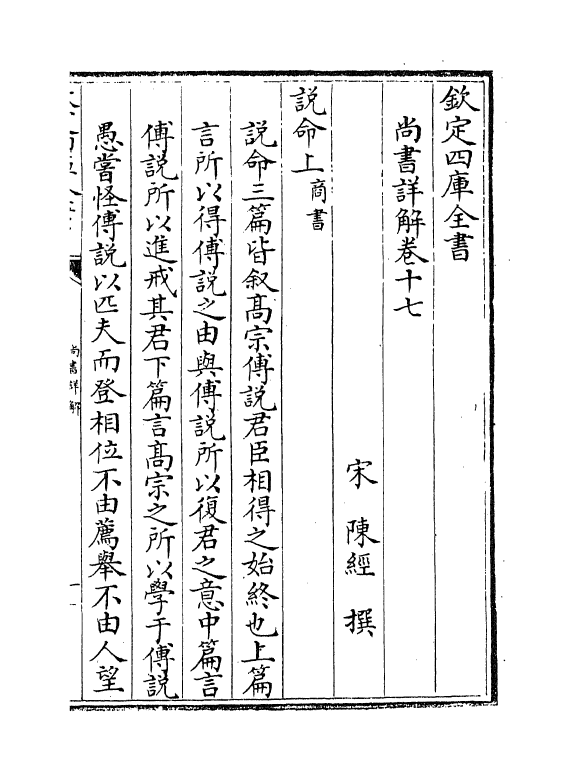 欽定四庫全書
尚書詳解卷十七
宋 陳經 撰
説命上商書
説命三篇皆叙髙宗傅説君臣相得之始終也上篇
言所以得傅説之由與傅説所以復君之意中篇言
傅説所以進戒其君下篇言髙宗之所以學于傅説
愚嘗怪傅説以匹夫而登相位不由薦舉不由人望
尚書詳解
一